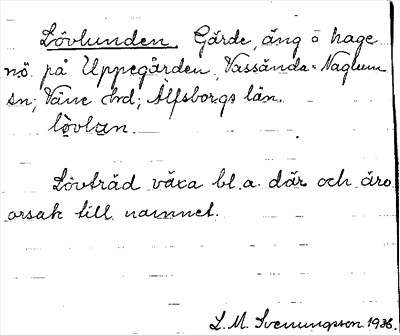 Lövlunden. Gärde, äng o hage
nö på Uppegården, Vassända-Naglum
sn; Väne hd; Älfsborgs län.
lövlun.
Lövträd växa bl. a. där och äro
orsak till namnet.
L. M. Svenungson 1936.